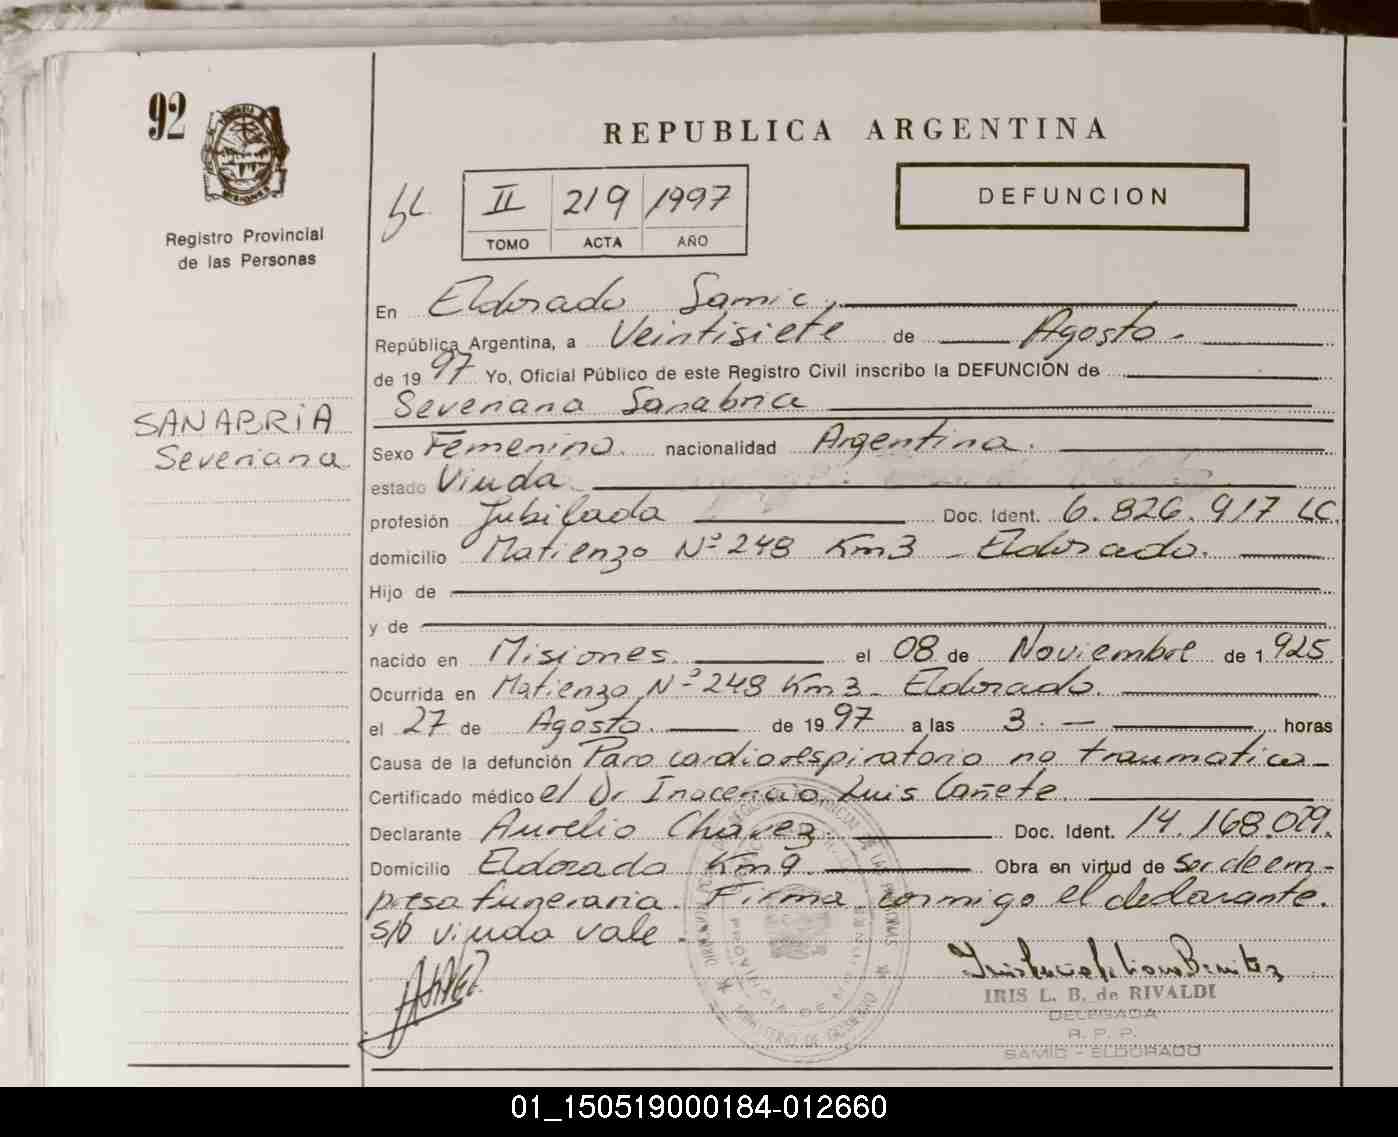 92
Registro Provincial
de las Personas
SANABRIA
Severiana
REPUBLICA ARGENTINA
II 219 1997
TOMO ACTA AÑO
DEFUNCION
En Eldorado Samic
República Argentina, a Veintisiete de Agosto.
de 1997 Yo, Oficial Público de este Registro Civil inscribo la DEFUNCION de
Severiana Sanabria
Sexo Femenino. nacionalidad Argentina.
estado Viuda
profesión Jubilada Doc. Ident. 6.826.917 LC.
domicilio Matienzo Nº 248 Km3 - Eldorado.
Hijo de
y de
nacido en Misiones el 08 de Noviembre de 1.925
Ocurrida en Matienzo Nº 248 Km3 - Eldorado.
el 27 de Agosto. de 1997 a las 3. - horas
Causa de la defunción Paro cardiorespiratorio no traumatico -
Certificado médico el Dr Inocencio Luis Cañete
Declarante Aurelio Chavez. Doc. Ident. 14.168.029.
Domicilio Eldorado Km 9. Obra en virtud de ser de em-
presa funeraria. Firma conmigo el declarante.
s/b viuda vale.
IRIS L. B. de RIVALDI
DELEGADA
R. P. P.
SAMIC - ELDORADO
01_150519000184-012660